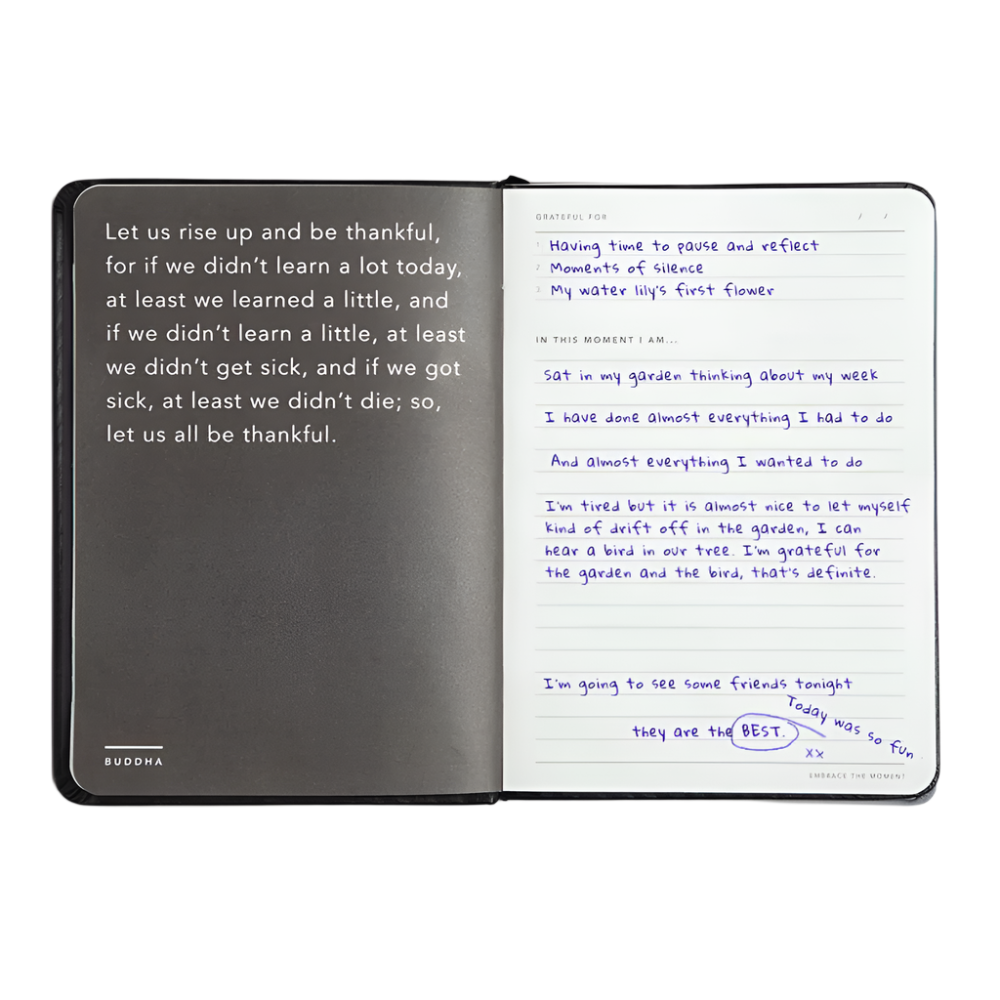 Let us rise up and be thankful,
for if we didn't learn a lot today,
at least we learned a little, and
if we didn't learn a little, at least
we didn't get sick, and if we got
sick, at least we didn't die; so,
let us all be thankful.
BUDDHA
GRATEFUL FOR / /
1 Having time to pause and reflect
2 Moments of silence
3 My water lily's first flower
IN THIS MOMENT I AM...
Sat in my garden thinking about my week
I have done almost everything I had to do
And almost everything I wanted to do
I'm tired but it is almost nice to let myself
kind of drift off in the garden, I can
hear a bird in our tree. I'm grateful for
the garden and the bird, that's definite.
I'm going to see some friends tonight
they are the BEST.
Today was so fun
xx
EMBRACE THE MOMENT